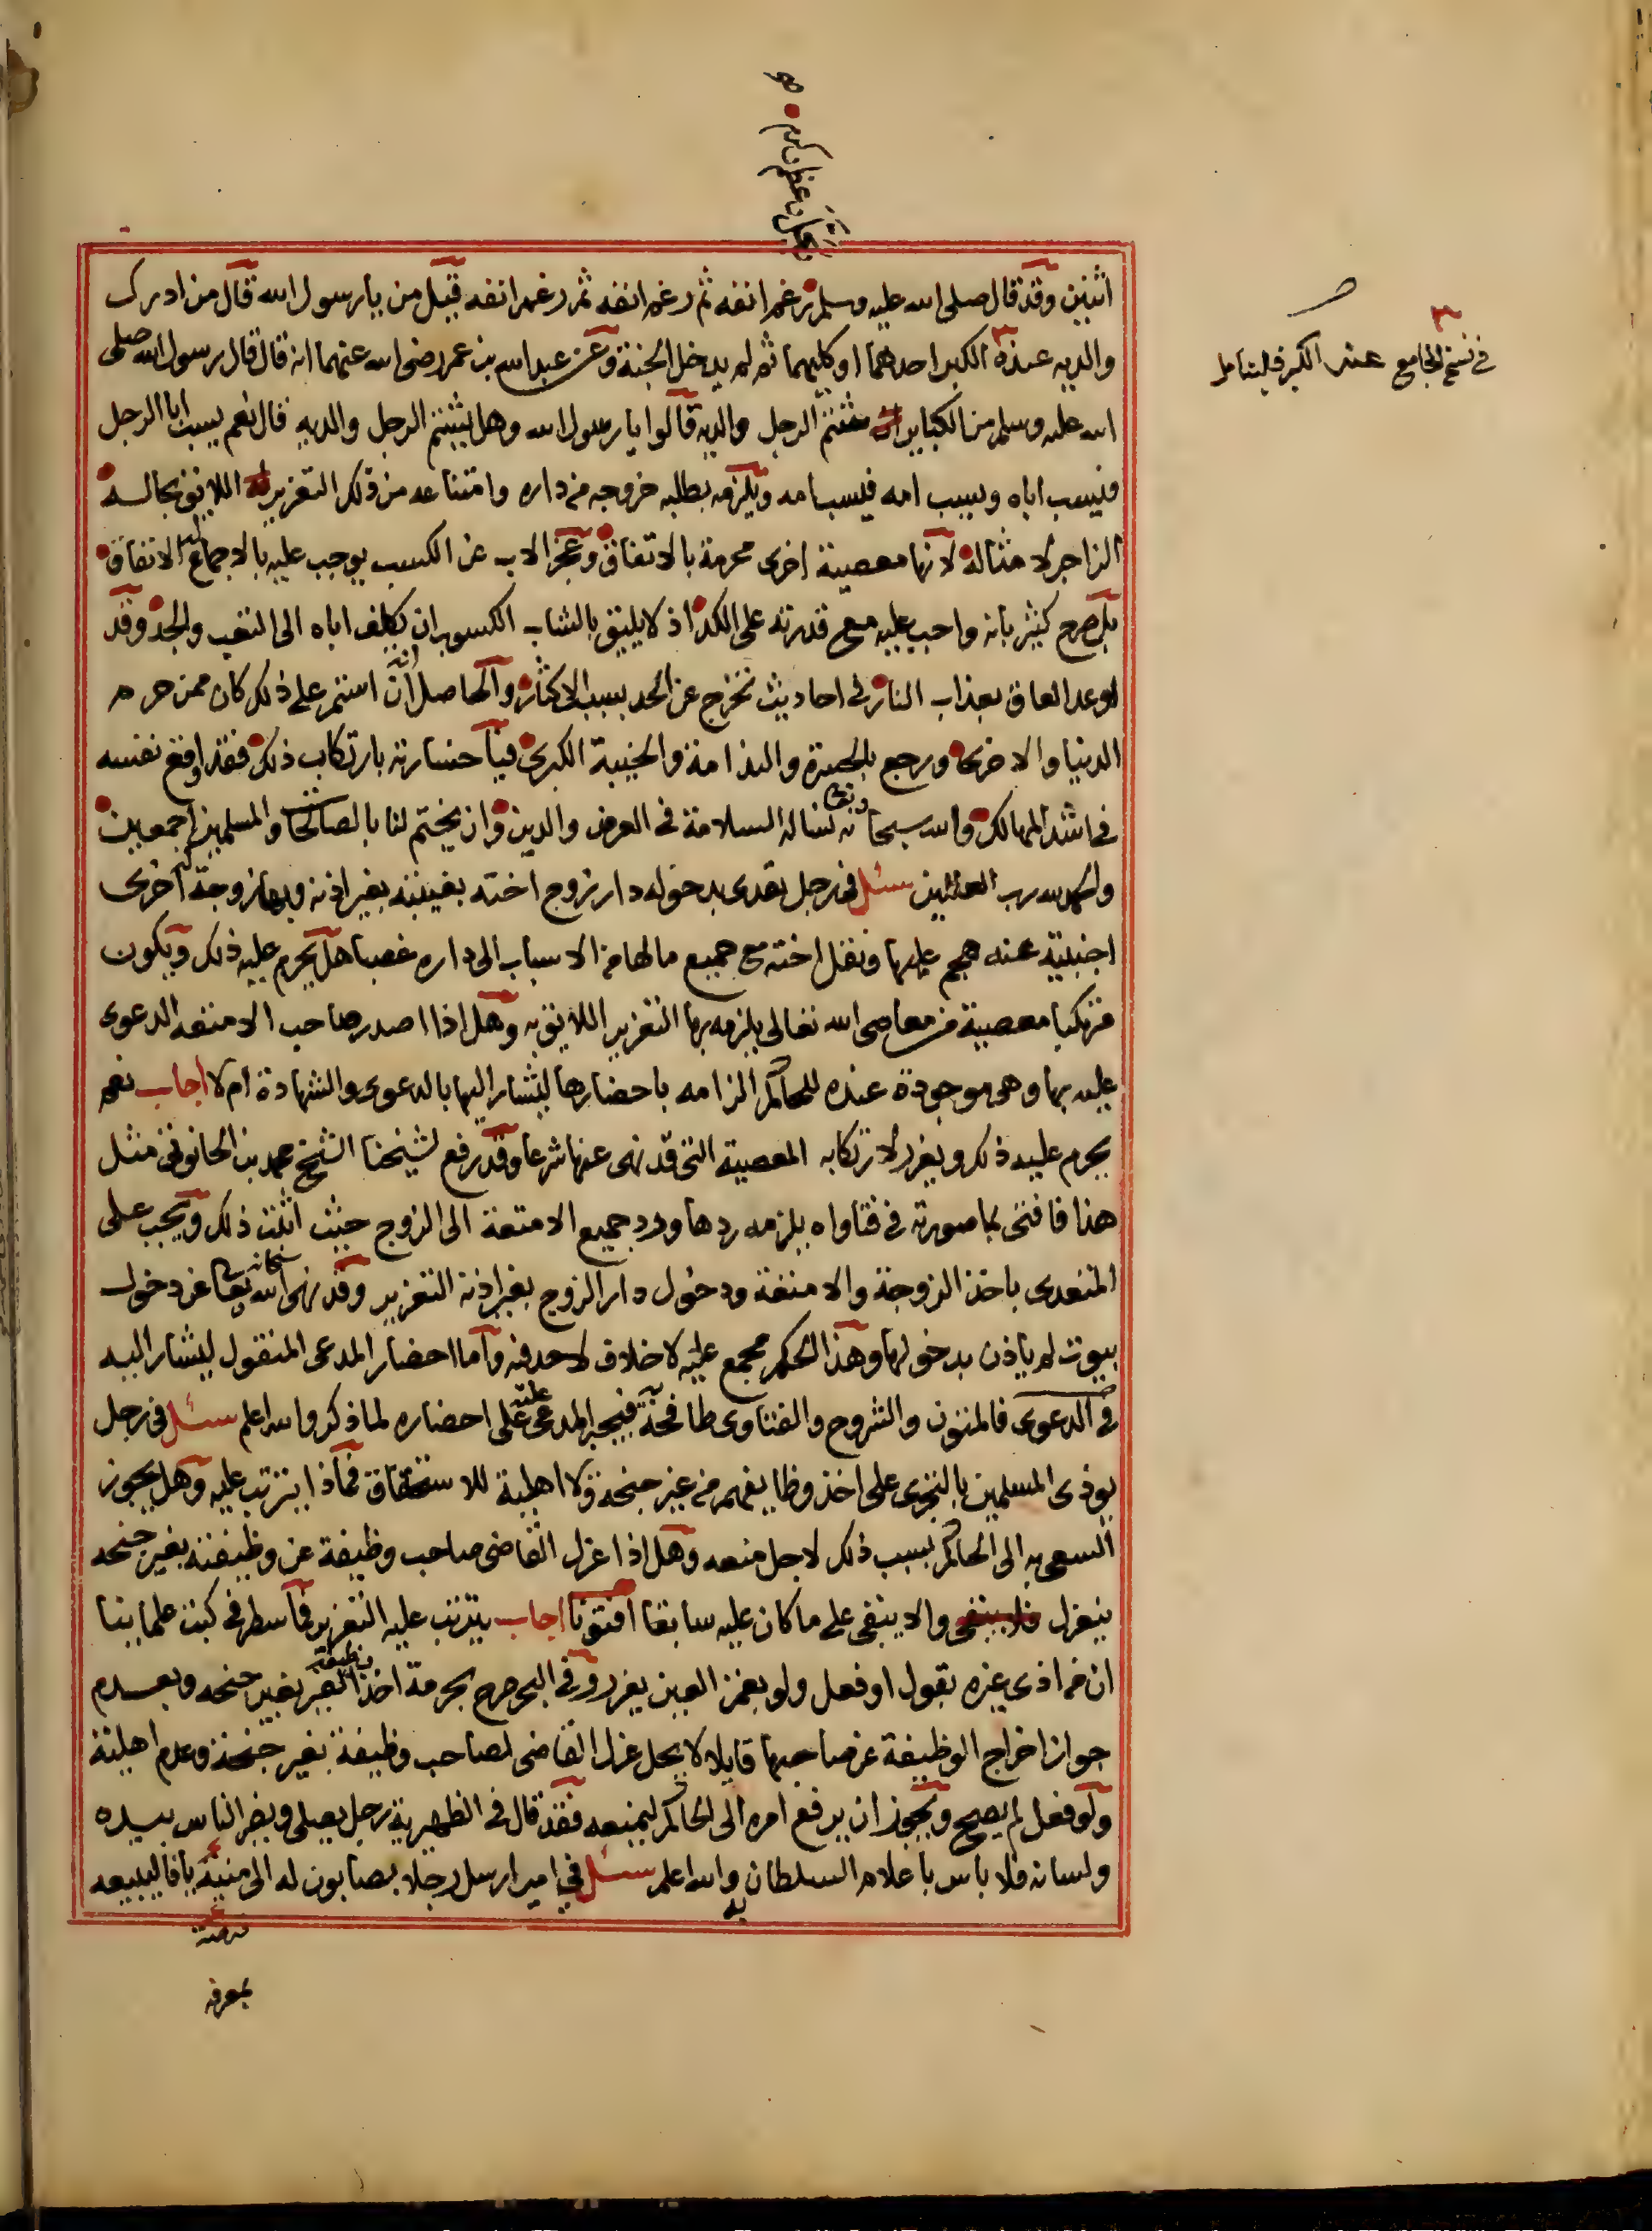 اثنين وقد قال صلى الله عليه وسلم رغم انفه ثم رغم انفه ثم رغم انفه قيل من يا رسول الله قال من ادرك
والديه عنده الكبر احدهما او كليهما ثم لم يدخل الجنة وعن عبد الله بن عمر رضى الله عنهما انه قال قال رسول الله صلى
الله عليه وسلم من الكباير شتم الرجل والديه قالوا يا رسول الله وهل يشتم الرجل والديه قال نعم يسب ابا الرجل
فيسب اباه ويسب امه فيسب امه ويلزمه بطلبه خروجه من داره وامتناعه من ذلك التعزير اللايق بحاله
الزاجر لامثاله لانها معصية اخرى محرمة بالاتفاق وعجز الاب عن الكسب يوجب عليه بالاجماع الانفاق
بل صرح كثير بانه واجب عليه مع قدرته على الكد اذ لا يليق بالشاب الكسوب ان يكلف اباه الى التعب والجد وقد
اوعد العاق بعذاب النار فى احاديث تخرج عن الحد بسبب الاكثار والحاصل انه ان استمر على ذلك كان ممن حرم
الدنيا والاخرى ورجع بالحسرة والندامة والخيبة الكبرى فيا خسارته بارتكاب ذلك فقد اوقع نفسه
فى اشد المهالك والله سبحانه وتعا نساله السلامة فى العرض والدين وان يختم لنا بالصالحا والمسلمين اجمعين
والحمد لله رب العالمين سئل فى رجل تعدى بدخوله دار زوج اخته بغيبته بغير اذنه وبها زوجة اخرى
اجنبية عنه هجم عليها ونقل اخته مع جميع مالها من الاسباب الى داره غصبا هل يحرم عليه ذلك ويكون
مرتكبا معصية من معاصى الله تعالى يلزمه بها التعزير اللايق به وهل اذا اصدر صاحب الامتعه الدعوى
عليه بها وهى موجودة عنده للحاكم الزامه باحضارها ليشار اليها بالدعوى والشهادة ام لا اجاب نعم
يحرم عليه ذلك ويعزر لارتكابه المعصية التى قد نهى عنها شرعا وقد رفع لشيخنا الشيخ محمد بن الحانوتى مثل
هذا فافتى بما صورته فى فتاواه يلزمه ردها ورد جميع الامتعة الى الزوج حيث اثبت ذلك ويجب على
المتعدى باخذ الزوجة والامتعة ودخول دار الزوج بغير اذنه التعزير وقد نهى الله سبحانه وتعا عن دخول
بيوت لم ياذن بدخولها وهذا الحكم مجمع عليه لا خلاف لاحد فيه واما احضار المدعى المنقول ليشار اليه
فى الدعوى فالمتون والشروح والفتاوى طافحة به فيجبر المدعى عليه على احضاره لما ذكر والله اعلم سئل فى رجل
يوذى المسلمين بالتجرى على اخذ وظايفهم من غير جنحة ولا اهلية للاستحقاق فماذا يترتب عليه وهل يجوز
السعى به الى الحاكم بسبب ذلك لاجل منعه وهل اذا عزل القاضى صاحب وظيفة عن وظيفته بغير جنحه
ينعزل والا يبقى على ما كان عليه سابقا افتونا اجاب يترتب عليه التعزير فما سطر فى كتب علماينا
ان من اذى غيره بقول او فعل ولو بغمز العين يعزر وفى البحر صرح بحرمة اخذ وظيفة الغير بغير جنحه وبعدم
جواز اخراج الوظيفة عن صاحبها قايلا لا يحل عزل القاضى لصاحب وظيفة بغير جنحة وعدم اهلية
ولو فعل لم يصح ويجوز ان يرفع امره الى الحاكم ليمنعه فقد قال فى الظهيرية رجل يصلى ويضر الناس بيده
ولسانه فلا باس باعلام السلطان به والله اعلم سئل فى امير ارسل رجلا بصابون له الى منية يافا ليبيعه
فى نسخ الجامع عند الكبر فليتامل
بمعرفة